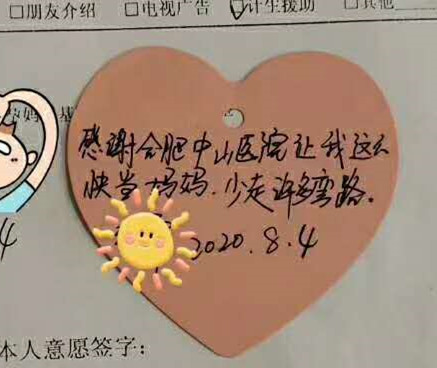 □朋友介绍 □电视广告 ☑计生援助 □其他
感谢合肥中山医院让我这么
快当妈妈.少走许多弯路。
2020.8.4
本人意愿签字：